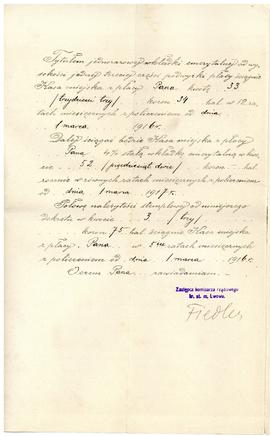 Tytułem jednorazowej wkładki emerytalnej od wy-
sokości jednej trzeciej części podwyżki płacy ściągnie
Kasa miejska z płacy Pana kwotę 33
/trzydzieści trzy/ koron 34 hal. w 12 ra-
tach miesięcznych z policzeniem od dnia
1 marca 1916 r.
Dalej ściągać będzie Kasa miejska z płacy
Pana 4% stałą wkładkę emerytalną w kwo-
cie 52 /pięćdziesiąt dwie/ koron - hal.
rocznie w równych ratach miesięcznych z policzeniem
od dnia 1 marca 1917 r.
Połowę należytości stemplowej od niniejszego
dekretu w kwocie 3 /trzy/
koron 75 hal. ściągnie Kasa miejska
z płacy Pana w 5ciu ratach miesięcznych
z policzeniem od dnia 1 marca 1916 r.
O czem Pana zawiadamiam.
Zastępca komisarza rządowego
kr. st. m. Lwowa.
Fiedler